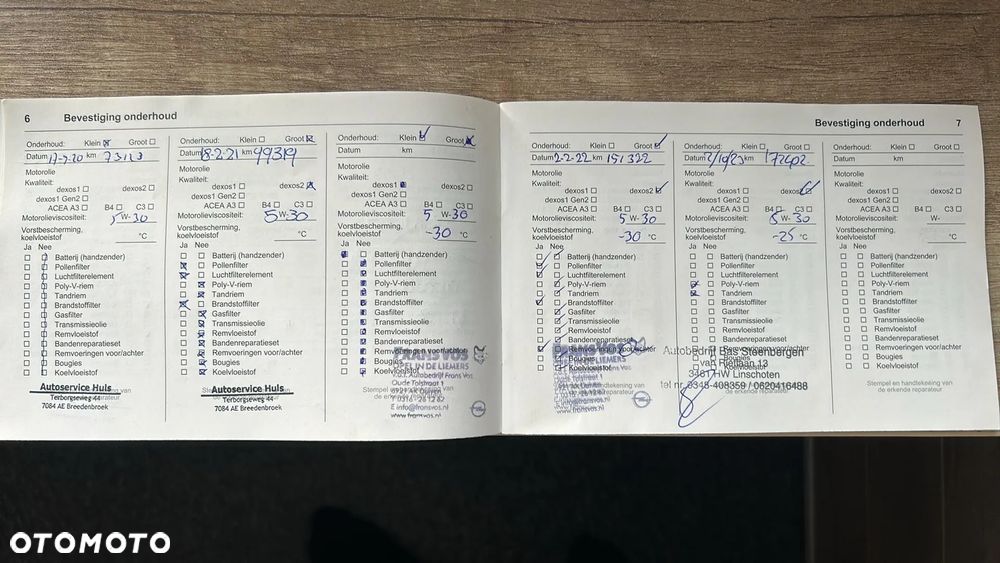 6 Bevestiging onderhoud
Onderhoud: Klein Groot
Datum km 73113
Motorolie
Kwaliteit:
dexos1 dexos2
dexos1 Gen2
ACEA A3 B4 C3
Motorolieviscositeit: 5 W-30
Vorstbescherming,
koelvloeistof °C
Ja Nee
Batterij (handzender)
Pollenfilter
Luchtfilterelement
Poly-V-riem
Tandriem
Brandstoffilter
Gasfilter
Transmissieolie
Remvloeistof
Bandenreparatieset
Remvoeringen voor/achter
Bougies
Koelvloeistof
Autoservice Huls
Terborgseweg 44
7084 AE Breedenbroek
Onderhoud: Klein Groot
Datum 18-2-21 km 99319
Motorolie
Kwaliteit:
dexos1 dexos2
dexos1 Gen2
ACEA A3 B4 C3
Motorolieviscositeit: 5 W-30
Vorstbescherming,
koelvloeistof °C
Ja Nee
Batterij (handzender)
Pollenfilter
Luchtfilterelement
Poly-V-riem
Tandriem
Brandstoffilter
Gasfilter
Transmissieolie
Remvloeistof
Bandenreparatieset
Remvoeringen voor/achter
Bougies
Koelvloeistof
Autoservice Huls
Terborgseweg 44
7084 AE Breedenbroek
Onderhoud: Klein Groot
Datum km
Motorolie
Kwaliteit:
dexos1 dexos2
dexos1 Gen2
ACEA A3 B4 C3
Motorolieviscositeit: 5 W-30
Vorstbescherming,
koelvloeistof -30 °C
Ja Nee
Batterij (handzender)
Pollenfilter
Luchtfilterelement
Poly-V-riem
Tandriem
Brandstoffilter
Gasfilter
Transmissieolie
Remvloeistof
Bandenreparatieset
Remvoeringen voor/achter
Bougies
Koelvloeistof
FRANS VOS
OPEL IN DE LIEMERS
V.o.f. Autobedrijf Frans Vos
Oude Tolstraat 1
E info@fransvos.nl
www.fransvos.nl
Bevestiging onderhoud 7
Onderhoud: Klein Groot
Datum 2-2-22 km 151322
Motorolie
Kwaliteit:
dexos1 dexos2
dexos1 Gen2
ACEA A3 B4 C3
Motorolieviscositeit: 5 W-30
Vorstbescherming,
koelvloeistof -30 °C
Ja Nee
Batterij (handzender)
Pollenfilter
Luchtfilterelement
Poly-V-riem
Tandriem
Brandstoffilter
Gasfilter
Transmissieolie
Remvloeistof
Bandenreparatieset
Remvoeringen voor/achter
Onderhoud: Klein Groot
Datum km 172402
Motorolie
Kwaliteit:
dexos1 dexos2
dexos1 Gen2
ACEA A3 B4 C3
Motorolieviscositeit: 5 W-30
Vorstbescherming,
koelvloeistof -25 °C
Ja Nee
Batterij (handzender)
Pollenfilter
Luchtfilterelement
Poly-V-riem
Tandriem
Brandstoffilter
Gasfilter
Transmissieolie
Remvloeistof
Bandenreparatieset
Remvoeringen voor/achter
Bougies
Koelvloeistof
Autobedrijf Bas Steenbergen
HW Linschoten
tel nr. 0348-408359 / 0620416488
Onderhoud: Klein Groot
Datum km
Motorolie
Kwaliteit:
dexos1 dexos2
dexos1 Gen2
ACEA A3 B4 C3
Motorolieviscositeit: W-
Vorstbescherming,
koelvloeistof °C
Ja Nee
Batterij (handzender)
Pollenfilter
Luchtfilterelement
Poly-V-riem
Tandriem
Brandstoffilter
Gasfilter
Transmissieolie
Remvloeistof
Bandenreparatieset
Remvoeringen voor/achter
Bougies
Koelvloeistof
Stempel en handtekening van
de erkende reparateur
OTOMOTO